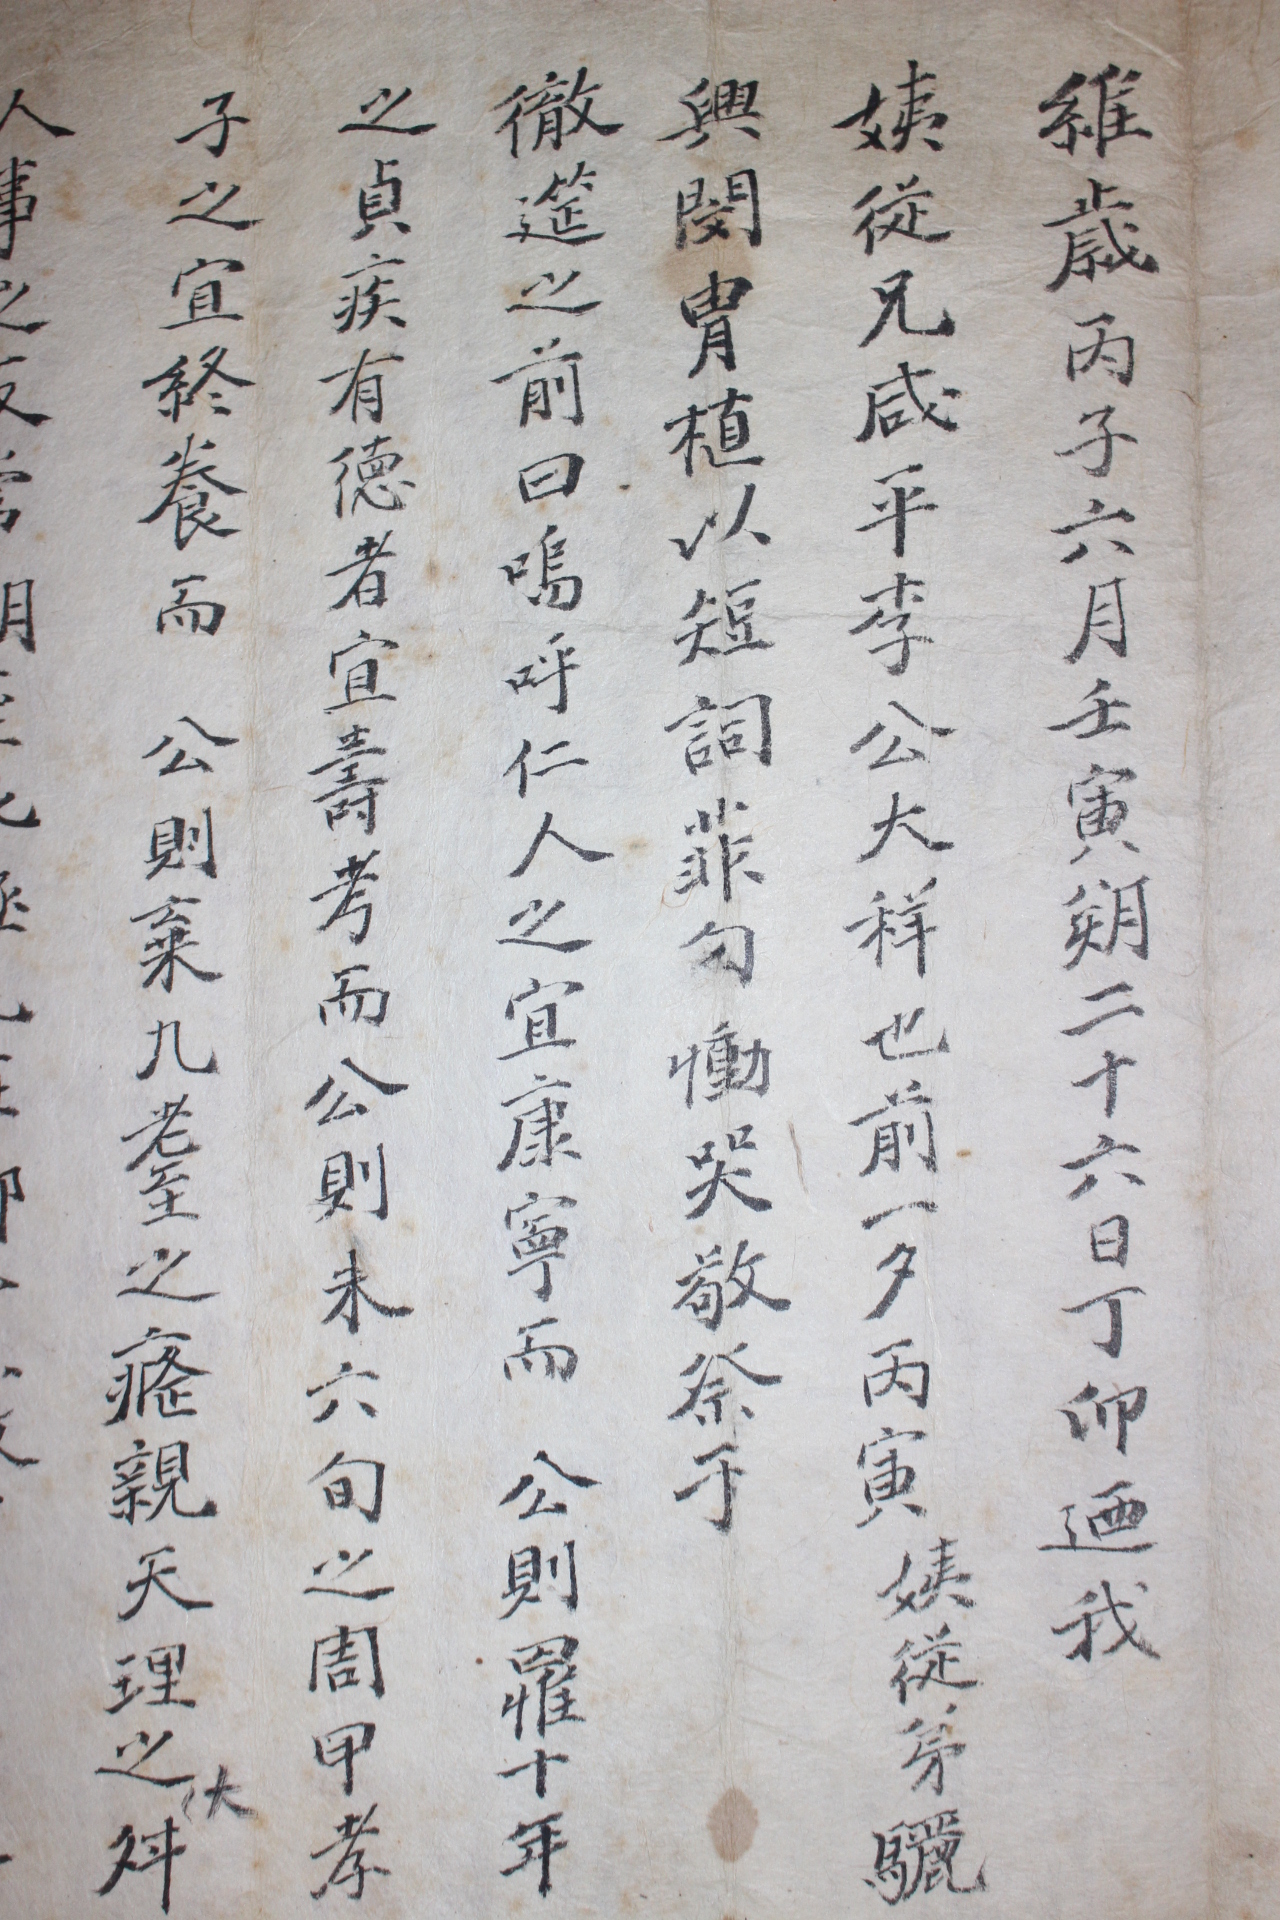 維歲丙子六月壬寅朔二十六日丁卯迺我
姨從兄咸平李公大祥也前一夕丙寅姨從弟驪
興閔胄植以短詞菲句慟哭敬祭于
徹筵之前曰嗚呼仁人之宜康寧而 公則罹十年
之貞疾有德者宜壽考而公則未六旬之周甲孝
子之宜終養而 公則棄九耋之癃親天理之舛
人事之反常胡至